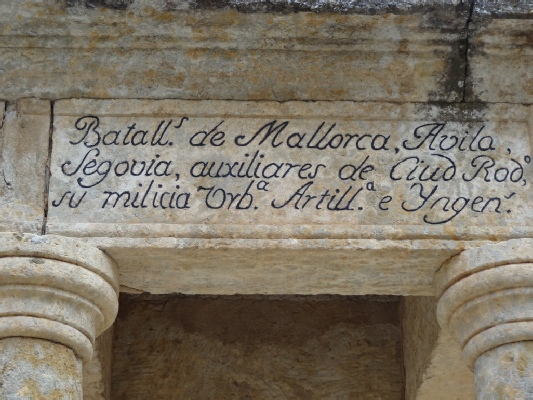 Batall.ˢ de Mallorca, Avila,
Segovia, auxiliares de Ciud Rod.º
su milicia Vrb.ª Artill.ª e Yngen.ˢ